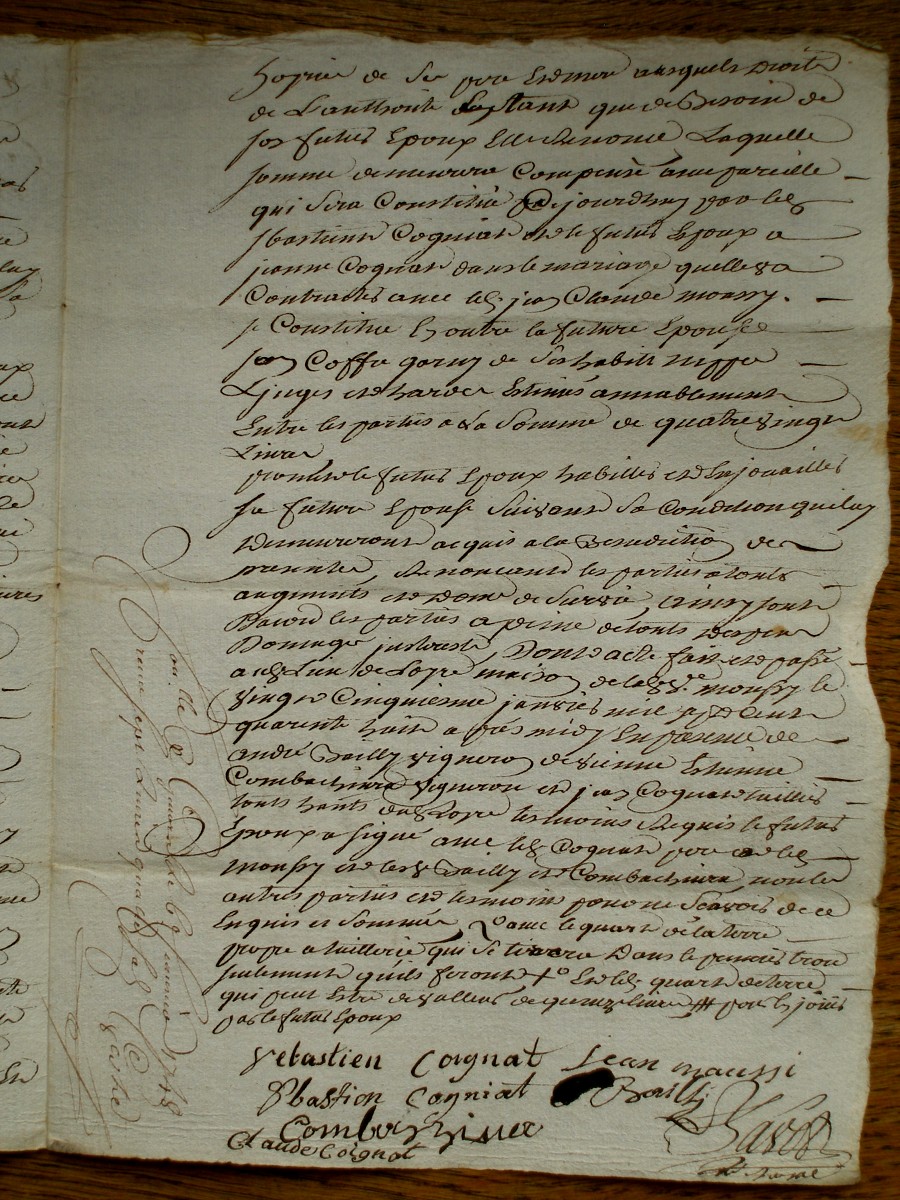 hoyrie de ses pere et mere auxquels droits
de L'authorité que de Besoin de
son futur Epoux Elle Renonce Laquelle
somme demeurera Compensé avec pareille
qui sera Constitué ce jourdhuy par led
sbastien Cogniat et le futur Epoux a
jeanne Cognat dans le mariage quelle va
Contracter avec led jean Claude moussy.
se Constitue En outre la future Epouse
son Coffre garny de ses habits nippes
Linges et hardes Estimés amiablement
Entre les parties a La Somme de quatre vingt
Livres
promet le futur Epoux habiller et Enjouailler
sa future Epouse suivant sa Condition qui luy
demeureront acquis a la Benediction des
presentes, Renonceant les parties a touts
augments et de survie, ainsy sont
Dacord les parties a peine de touts despens
Domage jnterests, Dont acte fait et passé
aud Lieu de Loyre maison de lad ve moussy le
vingt Cinquiesme janvier mil sept Cent
quarente huit apres midy En presence de
andré Bailly vigneron de vienne Estienne
Combachivra vigneron et jean Cognat tailleur
touts habts dud Loyre temoins Requis le futur
Epoux a signé avec led Cognat pere et led
moussy et lesd Bailly et Combachivra, non les
autres parties et temoins pour ne Scavoir de ce
Enquis et Sommés avec le quart de la terre
propre a tuillerie qui se tirera Dans le premier trou
seulement quils feront Et led quart de terre
qui peut Estre de valleur de quinze livres pour En jouir
par le futur Epoux
Sebastien Coignat Jean maussi
Sbastion Cogniat Bailli
Combachivra
Claude Coignat
Con. le a Givors le fevrier 1748